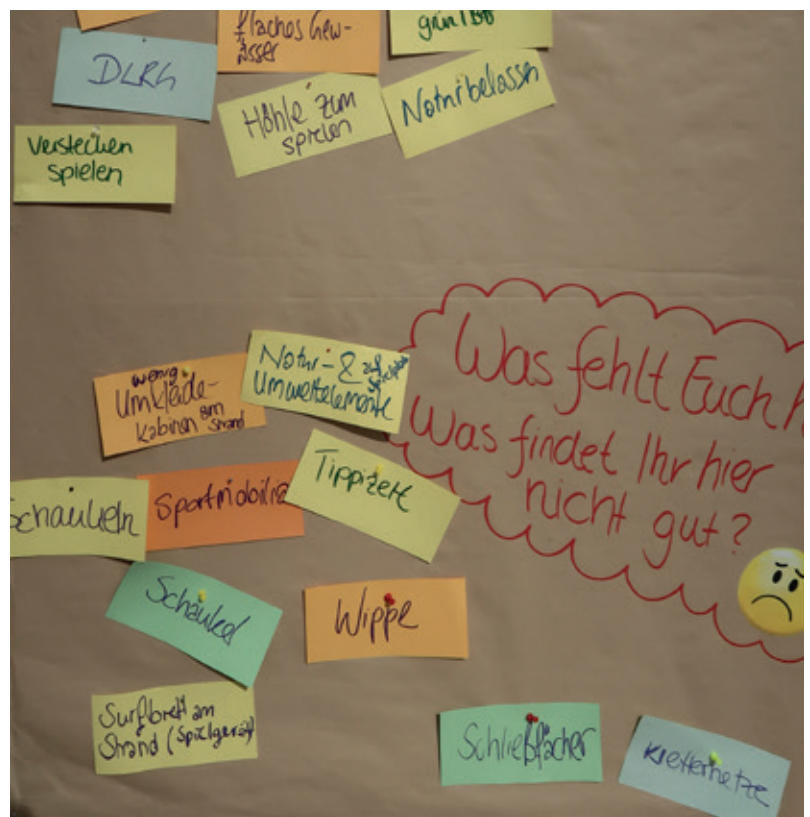 flaches Gew-
ässer
DLRG
Höhle zum
spielen
Naturbelassen
Verstecken
spielen
Was fehlt Euch h
Was findet Ihr hier
nicht gut?
wenig
Umkleide-
kabinen am
Strand
Natur- & auf
Umweltelemente
Schaukeln
Sportmobil
Tippizelt
Schaukel
Wippe
Surfbrett am
Strand (Spielgerät)
Schließfächer
Kletternetze